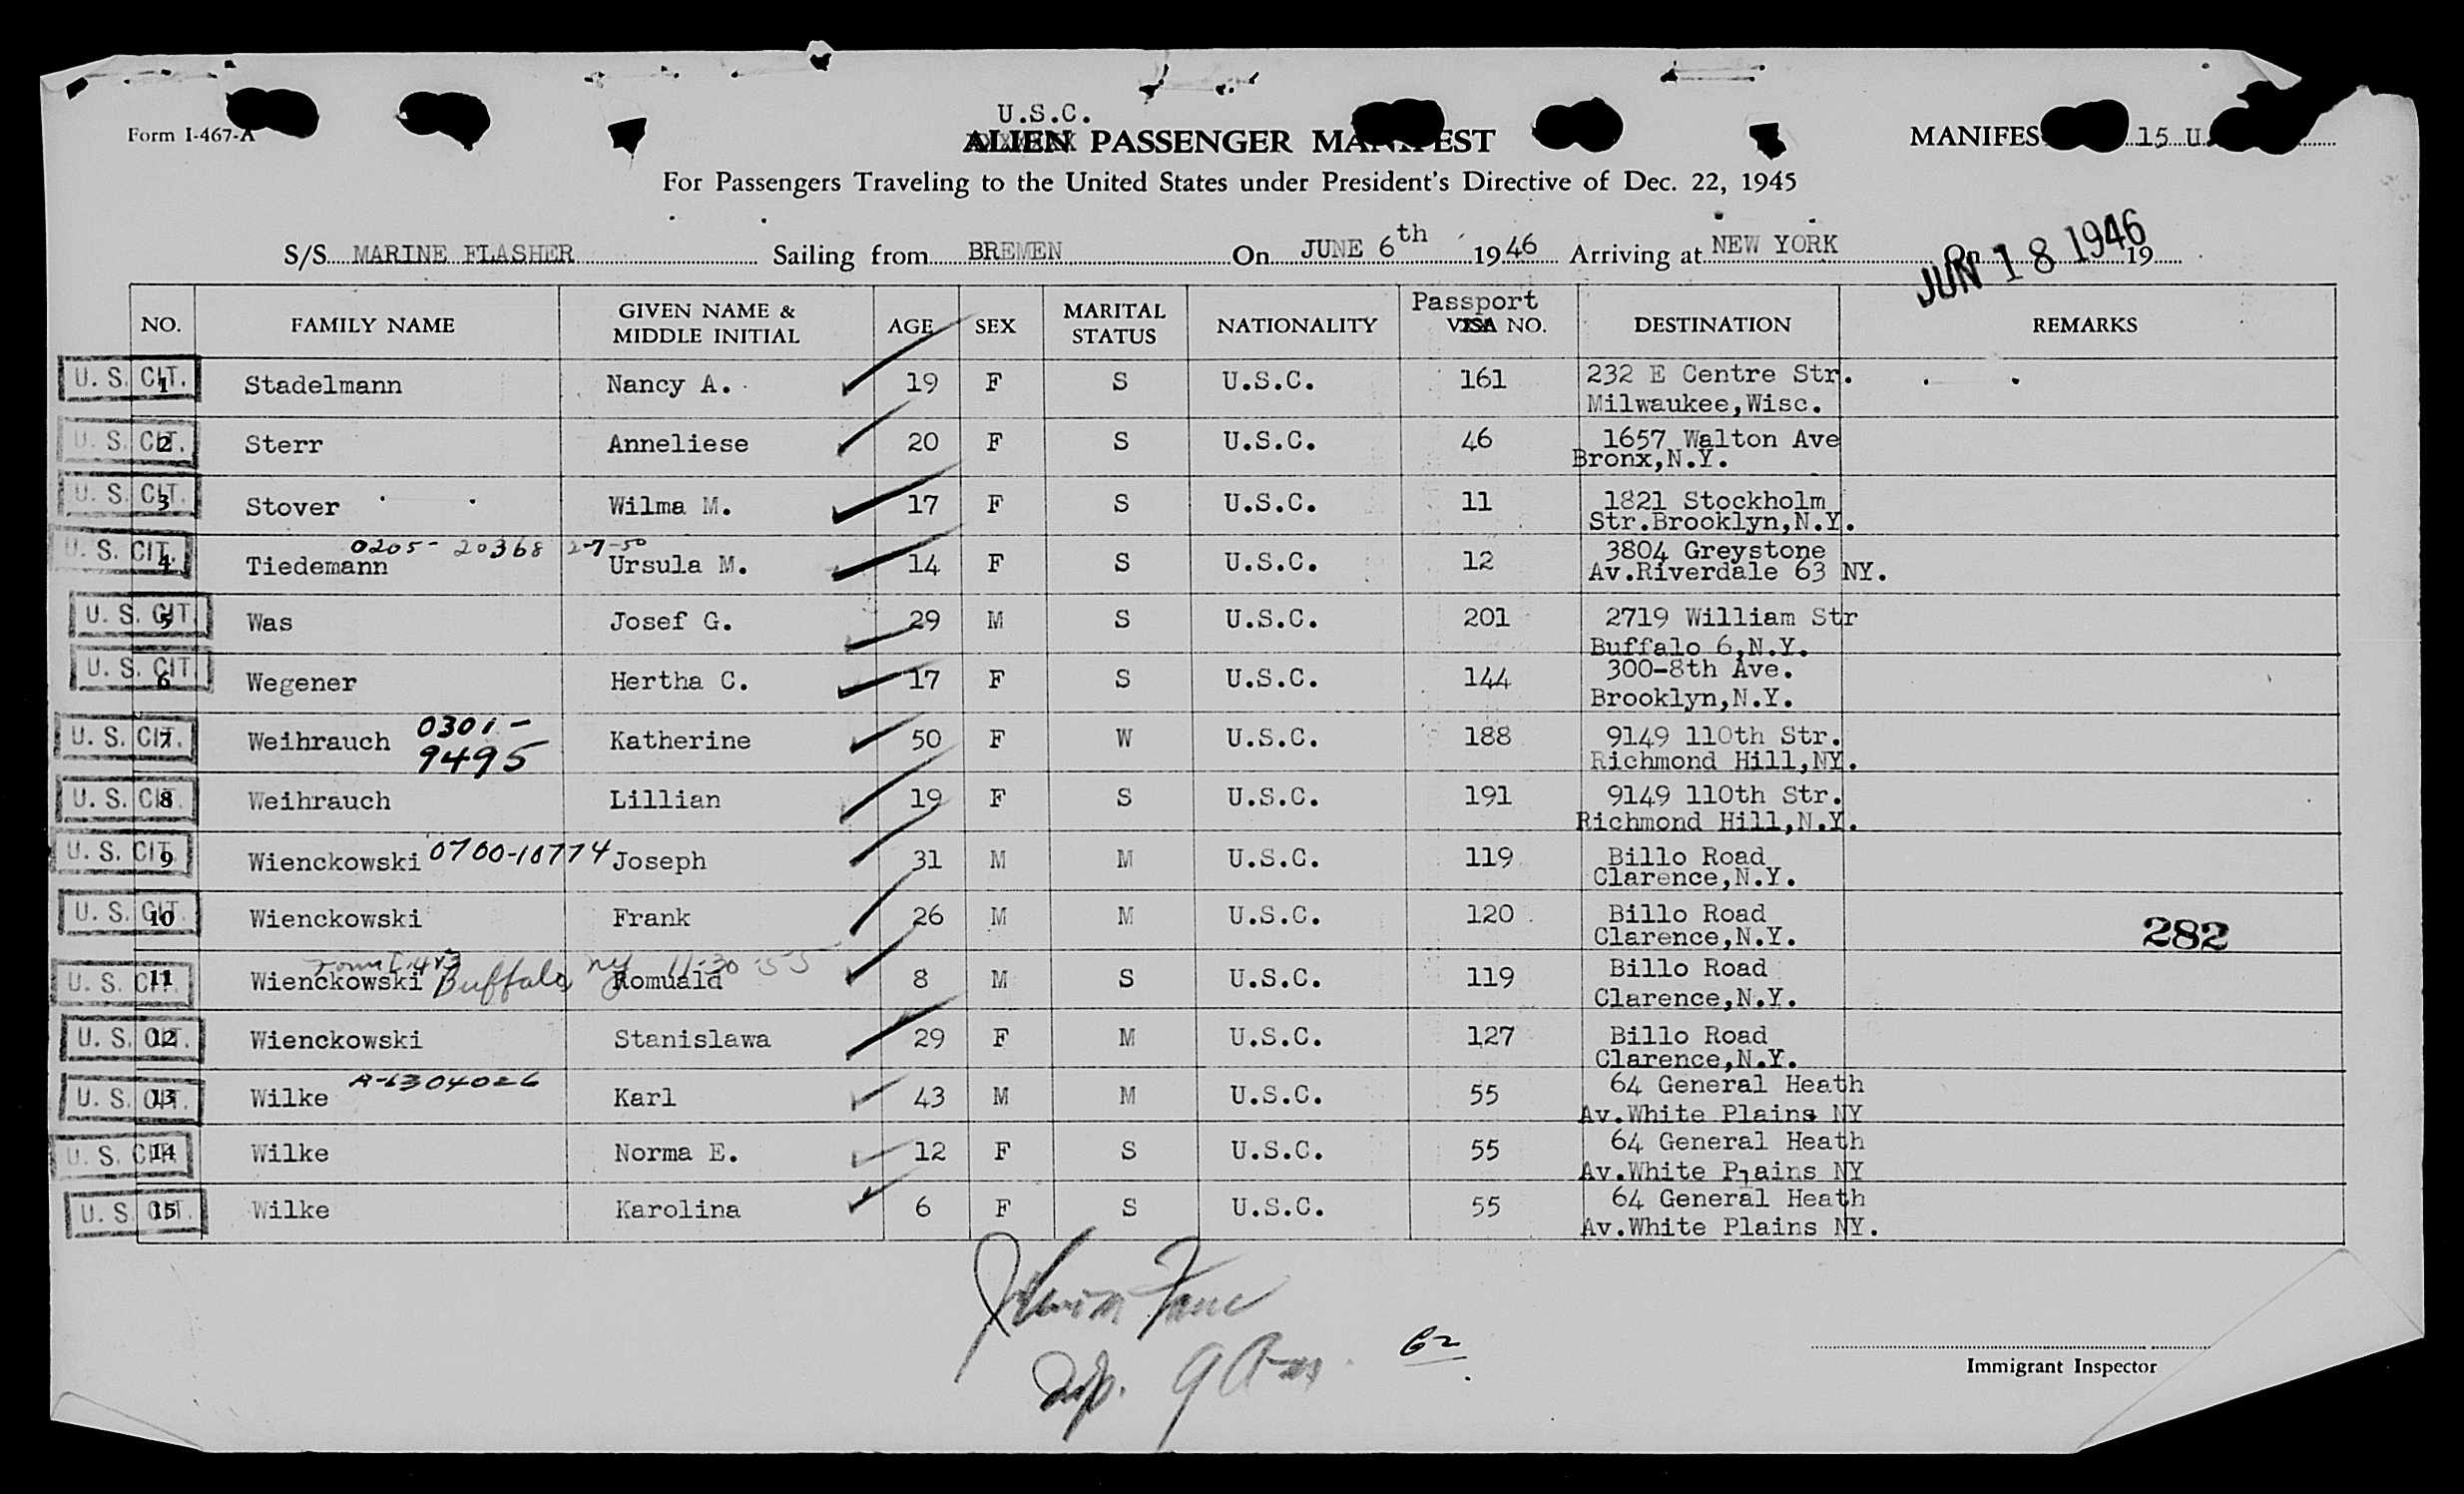 U.S.C.
Form I-467-A
ALIEN PASSENGER MANIFEST
MANIFES 15 U.
For Passengers Traveling to the United States under President's Directive of Dec. 22, 1945
S/S MARINE FLASHER Sailing from BREMEN On JUNE 6th 1946 Arriving at NEW YORK On 19
JUN 18 1946
NO. FAMILY NAME GIVEN NAME & MIDDLE INITIAL AGE SEX MARITAL STATUS NATIONALITY Passport VISA NO. DESTINATION REMARKS
U. S. CIT. 1 Stadelmann Nancy A. 19 F S U.S.C. 161 232 E Centre Str.
Milwaukee,Wisc.
U. S. CIT. 2 Sterr Anneliese 20 F S U.S.C. 46 1657 Walton Ave
Bronx,N.Y.
U. S. CIT. 3 Stover Wilma M. 17 F S U.S.C. 11 1821 Stockholm
Str.Brooklyn,N.Y.
0205- 20368 2-7-50
U. S. CIT. 4 Tiedemann Ursula M. 14 F S U.S.C. 12 3804 Greystone
Av.Riverdale 63 NY.
U. S. CIT. 5 Was Josef G. 29 M S U.S.C. 201 2719 William Str
Buffalo 6,N.Y.
U. S. CIT. 6 Wegener Hertha C. 17 F S U.S.C. 144 300-8th Ave.
Brooklyn,N.Y.
U. S. CIT. 7 Weihrauch 0301- Katherine 50 F W U.S.C. 188 9149 110th Str.
9495 Richmond Hill,NY.
U. S. CIT. 8 Weihrauch Lillian 19 F S U.S.C. 191 9149 110th Str.
Richmond Hill,N.Y.
U. S. CIT. 9 Wienckowski 0700-10774 Joseph 31 M M U.S.C. 119 Billo Road
Clarence,N.Y.
U. S. CIT. 10 Wienckowski Frank 26 M M U.S.C. 120 Billo Road
Clarence,N.Y. 282
Buffalo NY 11-30-55
U. S. CIT. 11 Wienckowski Romuald 8 M S U.S.C. 119 Billo Road
Clarence,N.Y.
U. S. CIT. 12 Wienckowski Stanislawa 29 F M U.S.C. 127 Billo Road
Clarence,N.Y.
A-6304026
U. S. CIT. 13 Wilke Karl 43 M M U.S.C. 55 64 General Heath
Av.White Plains NY
U. S. CIT. 14 Wilke Norma E. 12 F S U.S.C. 55 64 General Heath
Av.White Plains NY
U. S. CIT. 15 Wilke Karolina 6 F S U.S.C. 55 64 General Heath
Av.White Plains NY.
Immigrant Inspector